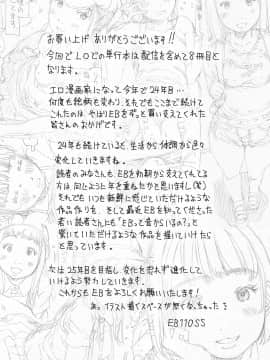 お買い上げ ありがとうございます!!
今回で LOでの単行本は配信を含めて8冊目と
なります。
エロ漫画家になって今年で24年目…
何度も絵柄も変わり、それでもここまで続けて
これたのは、やはりEBをずっと買い支えてくれた
皆さんのおかげです。
24年も続けていると 生活から体調から色々
変化していきますね。
読者のみなさんも、EB初期から支えてくれてる
方は同じように年を重ねたかと思いますし(笑)
それでも いつも新鮮に感じていただけるような
作品作りを、そして最近EBを知ってくださった
若い読者さんにも「EBって昔からいるの?」と
驚いていただけるような作品を描いていけたら
と思っています。
次は25年目を目指し変化を恐れず進化して
いけるよう努力していきます。
これからも EBをよろしくお願いいたします!
あっ、イラスト描くスペースが無くなっちゃった
EB110SS